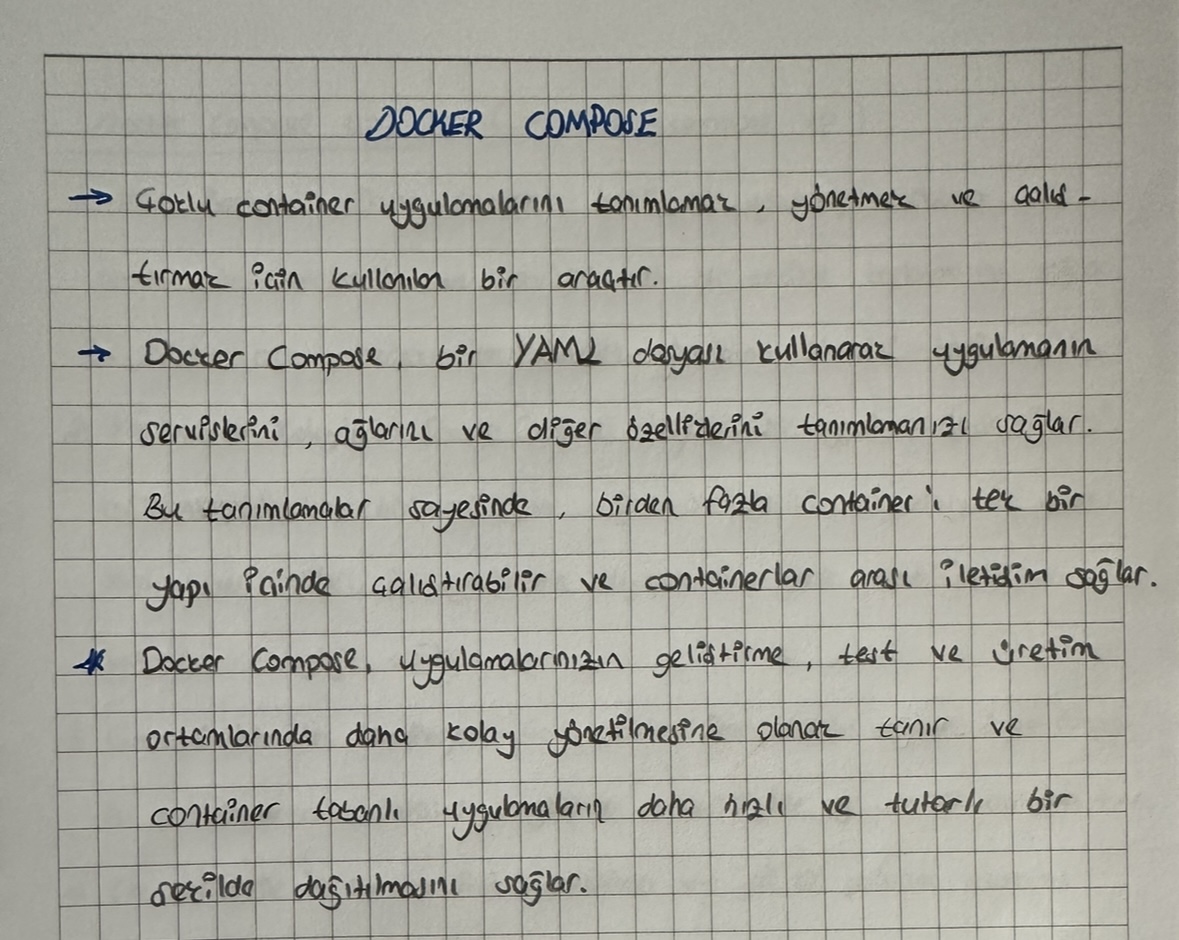 DOCKER COMPOSE
→ Çoklu container uygulamalarını tanımlamak, yönetmek ve çalış-
tırmak için kullanılan bir araçtır.
→ Docker Compose, bir YAML dosyası kullanarak uygulamanın
servislerini, ağlarını ve diğer özelliklerini tanımlamanızı sağlar.
Bu tanımlamalar sayesinde, birden fazla container'ı tek bir
yapı içinde çalıştırabilir ve containerlar arası iletişim sağlar.
* Docker Compose, uygulamalarınızın geliştirme, test ve üretim
ortamlarında daha kolay yönetilmesine olanak tanır ve
container tabanlı uygulamaların daha hızlı ve tutarlı bir
şekilde dağıtılmasını sağlar.